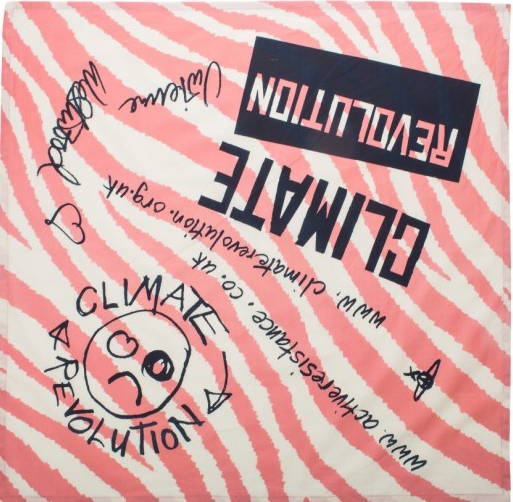 CLIMATE
REVOLUTION
www.climaterevolution.org.uk
www.activeresistance.co.uk
Vivienne
Westwood
CLIMATE
REVOLUTION